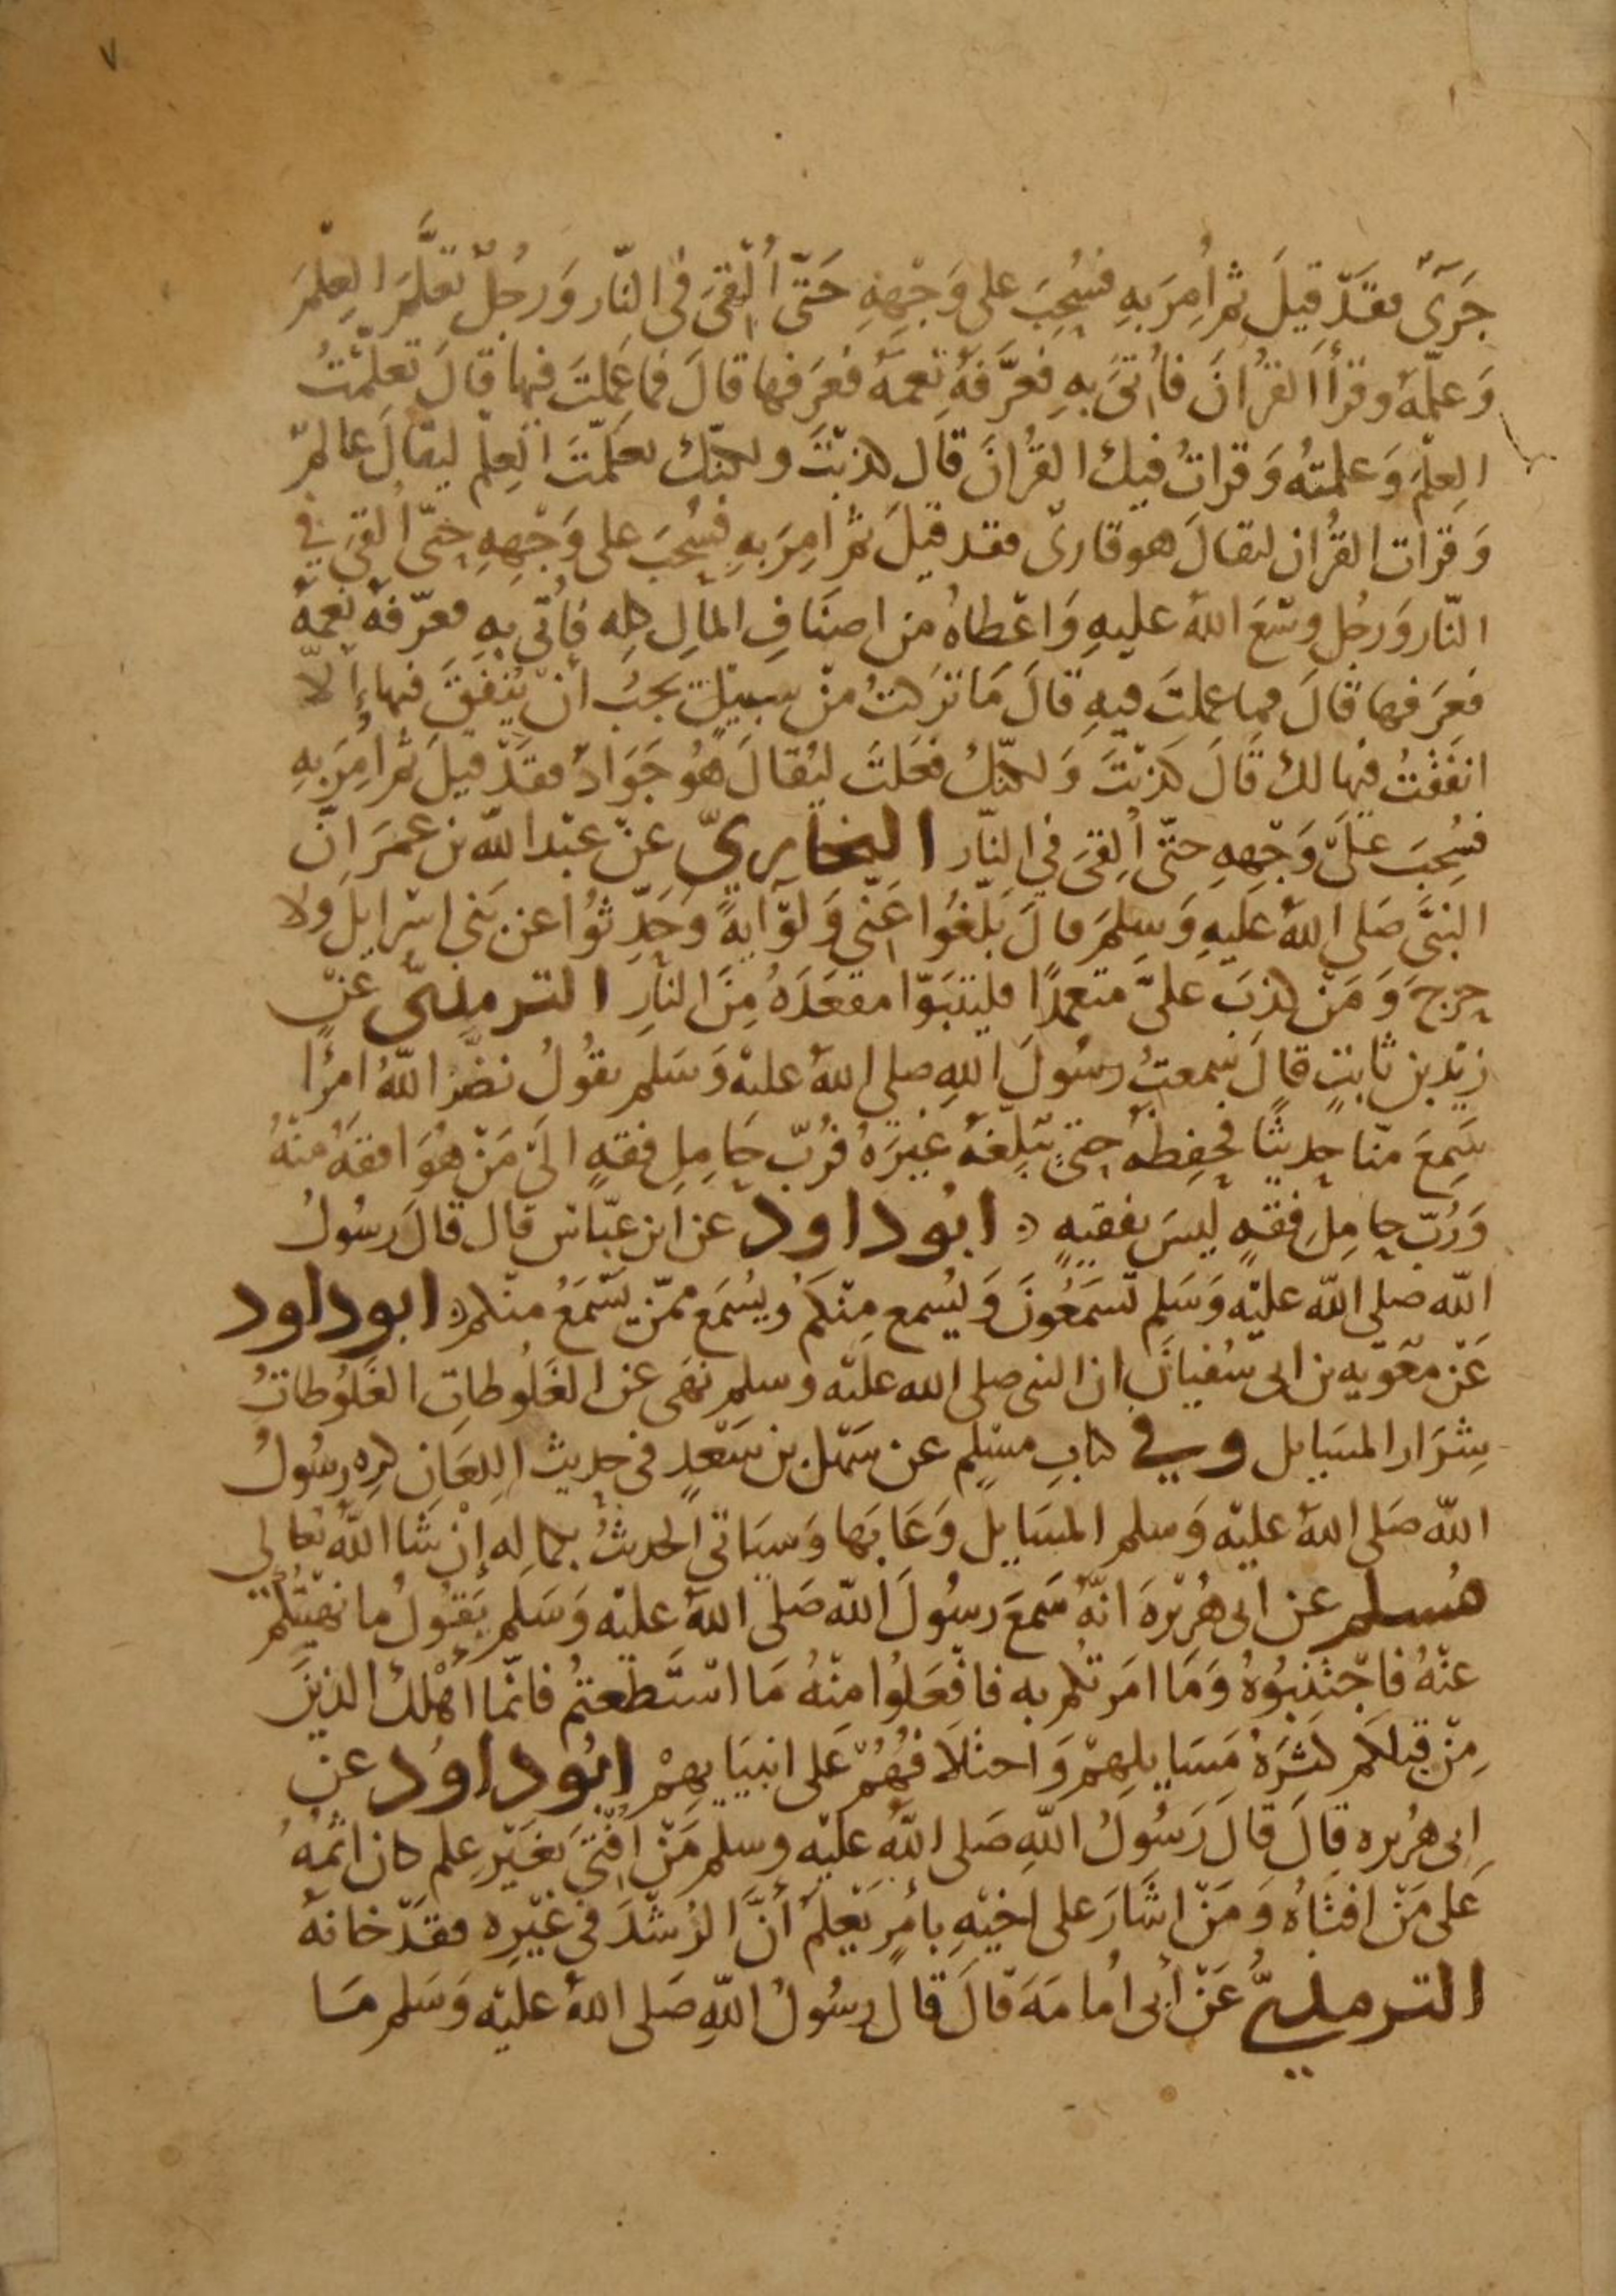 ٧
جَرَىٌ فقَدْ قِيلَ ثمر اُمِرَ بهِ فسُحِبَ على وَجْهِهِ حَتّى أُلْقِىَ فى النّار وَرجُلٌ تعَلَّمَ العِلمَ
وَعلّمهُ وقرأ القرُانَ فأُتىَ بهِ فعَرَّفهُ نِعمَهُ فعَرَفها قالَ فما عَمِلتَ فيها قالَ تعلّمْتُ
العِلمَ وَعلمتهُ وَقراتُ فيك القرُانَ قال كذبْتَ ولكنّك تعَلمْتَ العِلْم ليقالَ عالمٌ
وَقرات القرُان ليقالَ هو قارىٌ فقد قيلَ ثمر امِرَ بهِ فسُحبَ على وَجْهِهِ حتّى اُلقىَ في
النّار وَرجُل وسّعَ اللهُ عليهِ وَاعْطاهُ من اصنَافِ المالِ كله فأُتى بهِ فعرّفهُ نِعمهُ
فعَرَفها قالَ فما عملتَ فيهِ قالَ مَا تركتُ منْ سبيْلٍ تحِبُّ انْ يُنْفَقَ فيها إلاّ
انفَقْتُ فيها لك قالَ كذبْتَ وَلكنّكَ فعَلتَ ليُقالَ هُو جَوَادٌ فقَدْ قيلَ ثمر امُرَ بهِ
فسُحِبَ علَى وَجْهِهِ حتّى أُلقىَ في النّار البخاريّ عنْ عبْد الله بن عمرَ انّ
النبَّى صَلى اللهُ عَليهِ وَسلمَ قالَ بَلّغُوا عَنّي وَلوْ ايهً وَحَدّثوُا عن بَنى اسْرايلَ ولا
حرجَ وَمَنْ كذبَ علىَّ متعمدًا فليتبَوّا مقعَدَهُ مِنَ النارِ الترمذىّ عنْ
زيْد بن ثابتٍ قالَ سَمعتُ رسُولَ اللهِ صلى اللهُ عليْه وَسَلم يقُولُ نضّرَ اللهُ امرُا
سَمِعَ منّا حديثًا فحَفِظهُ حتىّ يبَلّغهُ غيْرَهُ فرُبّ حَامِلِ فقهٍ الىَ مَنْ هُوَ افقهُ منْهُ
وَرُبّ حامِلِ فِقْهٍ ليسَ بفقيهٍ ۞ ابوُداود عن ابن عبّاس قال قالَ رسُولُ
الله صلى الله عليْه وَسَلم تَسمَعُونَ وَيُسمع مِنْكمُ ويُسْمَع ممّن يَسْمَعُ منكم ۞ ابوداود
عَنْ معٰويه بن ابى سُفيانَ ان النبى صلى الله عليْه وسلم نهَى عن الغَلُوطاتِ الغَلُوطاتُ
شِرَار المسَايل وفي كتابِ مسْلم عن سَهْل بن سَعْدٍ في حديث اللِعَان كرِه رسُولُ
الله صَلى اللهُ عليْه وَسلم المسَايلَ وَعَابَها وَسيَاتى الحديثُ بكماله إنْ شَا اللهُ تعالى
مُسلم عن ابى هُرَيْرهَ انّهُ سَمعَ رسُولَ الله صَلى اللهُ عليْه وَسَلم يَقوُلُ ما نهَيْتُكُمْ
عنْهُ فاجْتنبُوهُ وَمَا امَرتُكم به فافْعَلوُا منْهُ مَا اسْتَطعتمُ فانّما أهْلكَ الذينَ
مِنْ قبْلكمْ كثرَهُ مَسَايلِهمْ وَاختلَافهُمُ عَلى انبيَايهمْ ابُوداوُد عنْ
ابى هُريره قالَ قالَ رَسُولُ اللهِ صَلى اللهُ عليْه وسلم مَنْ اُفتْىَ بغَيْرِ عِلم كان اثمُهُ
عَلى مَنْ افتَاهُ وَمَنْ اشَارَ على اخيْهِ بأمرٍ يَعْلمُ أنَّ الرُشْدَ في غيْره فقَدْ خانهُ
الترمذيُّ عَنْ أبى اُمامَهَ قالَ قالَ رسُولُ اللهِ صَلى اللهُ عليْه وَسَلم مَا